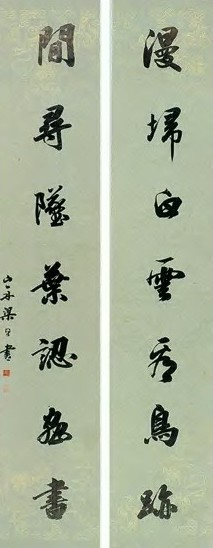 漫掃白雲看鳥跡
間尋墜葉認蟲書
山舟梁同書